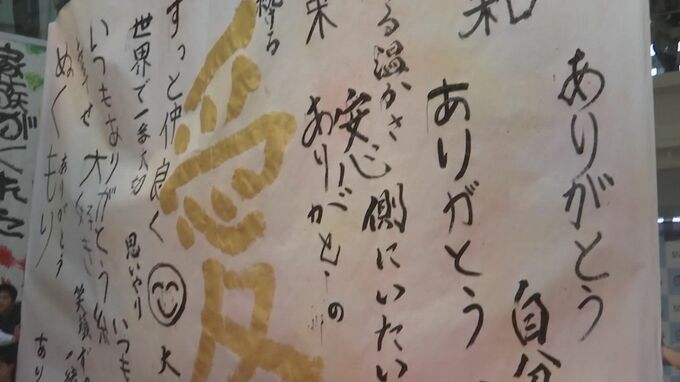 ありがとう
自分
和
ありがとう
る温かさ 側にいたい
安心
ありがとうの
愛
ずっと仲良く 大
世界で一番大切 思いやり いつも
いつもありがとう
幸せ 大好き 笑顔が
ぬくもり ありがとう あり
家族がくれた